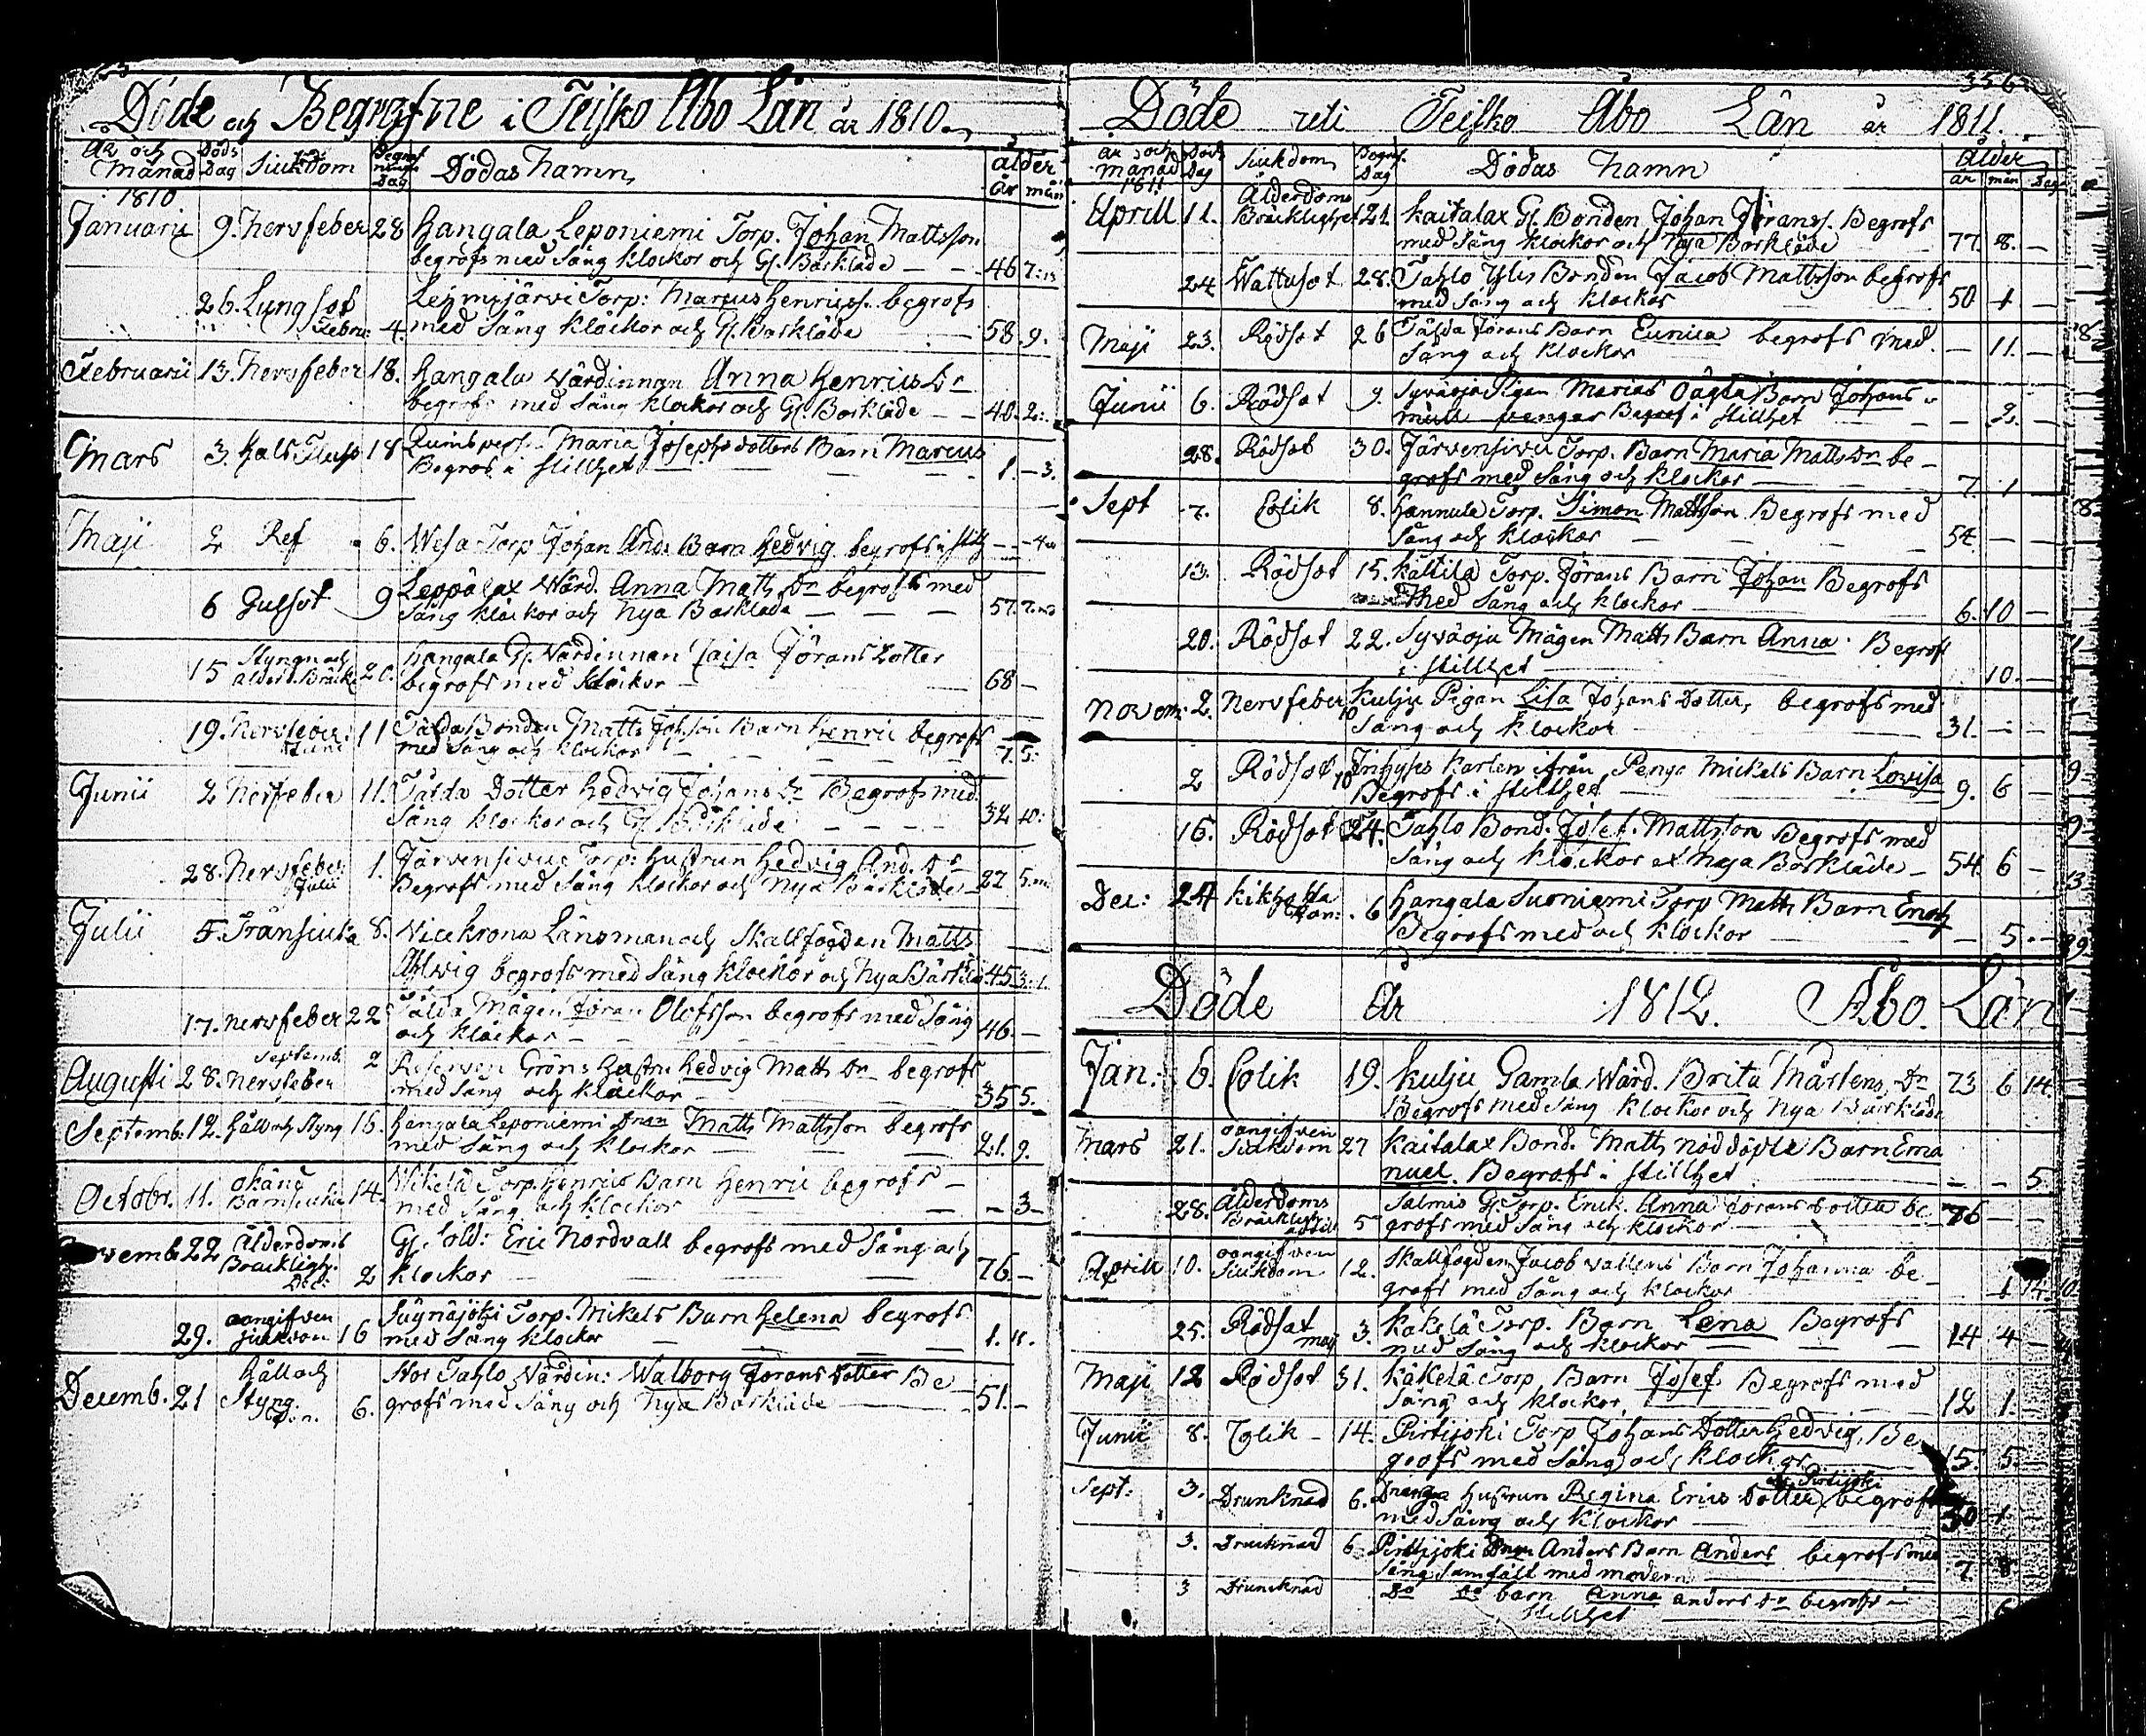 Döde och Begrafne i Teisko Åbo Län år 1810.
År och Månad Döds Dag Siukdom Begraf nings Dag Dödas Namn ålder år mån
1810
Januarii 9. Nervfeber 28 Hangala Leponiemi Torp. Johan Mattsson
begrofs med Sång klockor och Gl. Bårkläde 46 7.
26. Lungsot Lehmijärvi Torp: Marcus Henricss. begrofs
Febru 4. med Sång klockor och Gl. Bårkläde 58. 9.
Februarii 13. Nervfeber 18. Hangala Värdinnan Anna Henrics Dr
begrofs med Sång klockor och Gl. Bårkläde 40. 2.
Mars 3. Hals Fluss 18 Maria Josephsdotters Barn Marcus
Begrofs i stillhet 1. 3.
Maji 2 Ref 6. Wesa Torp Johan Ands Barn Hedvig begrofs i stillh 4
6 Gulsot 9 Leppälax Wärd. Anna Matts Dr begrofs med
Sång klockor och Nya Bårkläde 57. 7.
15 Styngn och Alderd. Bräckl 20. Hangala Gl. Värdinnan Caisa Jörans Dotter
begrofs med klockor 68
19. Nervfeber 11 Tälda Bonden Matts Johsson Barn Henric begrofs
Juni med Sång och klockor 7. 5.
Junii 2 Nerfeber 11. Tälda Dotter Hedvig Johans Dr Begrofs med
Sång klockor och Gl. Bårkläde 32 10.
28. Nervfeber 1. Järvensivu Torp: Hustrun Hedvig And. Dr
Julii Begrofs med Sång klockor och Nya Bårkläde 27 5.
Julii 5. Trånsiuka 8. Vice krono Länsman och Skallfogden Matts
Ahlwig begrofs med Sång klockor och Nya Bårkläde 45 3.
17. Nervfeber 22 Tälda Mågen Jöran Olofsson begrofs med Sång
och klockor 46.
Septemb.
Augusti 28. Nervfeber 2 Reserven Gröns Hustru Hedvig Matts Dr begrofs
med Sång och klockor 35 5.
Septemb. 12. Håll och Styng 16. Hangala Leponiemi Matts Mattsson begrofs
med Sång och klockor 21. 9.
Octobr. 11. okänd Barnsiuka 14. Torp. Henrics Barn Henric begrofs
med Sång och klockor 3
Novemb 22 Ålderdoms Gl. Sold: Eric Nordvall begrofs med Sång och
Bräckligh. Dec: 2 klockor 76.
29. oangifven siukdom 16 Torp. Mikels Barn Helena begrofs
med Sång klockor 1. 11.
Håll och
Decemb. 21 Styng. Stor Tahlo Värdin: Walborg Jörans Dotter Be
Jan. 6. grofs med Sång och Nya Bårkläde 51.
356
Döde uti Teisko Åbo Län år 1811.
år och månad Döds Dag Siukdom Begraf. Dag Dödas Namn Ålder
1811 år mån Dag
Aprill 11. Ålderdoms Bräcklighet 21. Kaitalax Gl. Bonden Johan Jöranss. Begrofs
med Sång klockor och Nya Bårkläde 77. 8.
24 Wattusot 28. Tahlo Ylis Bonden Jacob Mattsson begrofs
med Sång och klockor 50 1
Maji 23. Rödsot 26 Tälda Jörans Barn Eunica begrofs med
Sång och klockor 11.
Junii 6. Rödsot 9. Syväoja Pigan Marias Oägta Barn Johans
Begrof i stillhet 2.
28. Rödsot 30. Järvensivu Torp. Barn Maria Matts Dr be-
grofs med Sång och klockor 7. 1
Sept 7. Colik 8. Hannula Torp. Simon Mattsson Begrofs med
Sång och klockor 54.
13. Rödsot 15. Kältilä Torp. Jörans Barn Johan Begrofs
med Sång och klockor 6. 10
20. Rödsot 22. Syväoja Mågen Matts Barn Anna Begrofs
i stillhet 10.
Novem: 2. Nervfeber 10 Kulju Pigan Lisa Johans Dotter, begrofs med
Sång och klockor 31.
2 Rödsot 10 Inhyses Karlen ifrån Penga Mickels Barn Lovisa
Begrofs i stillhet 9. 6
16. Rödsot 24. Tahlo Bond. Josef. Mattsson Begrofs med
Sång och klockor och Nya Bårkläde 54. 6
Dec: 24 Kikhosta Hangala Suoniemi Torp Matts Barn Enoch
Jan: 6 Begrofs med och klockor 5.
Döde År 1812. Åbo. Län
Jan: 6. Colik 19. Kulju Gamla Wärd. Brita Mårtens Dr 73 6 14.
Begrofs med Sång klockor och Nya Bårkläde
Mars 21. oangifven Siukdom 27 Kaitalax Bond. Matts nöddöpta Barn Ema
nuel. Begrofs i stillhet 5.
28. Ålderdoms Salmis Gl. Torp. Enck. Anna Jörans Dotter be
Bräckligh 5 grofs med Sång och klockor 76
Aprill 10. oangifven Siukdom 12. Skallfogden Jacob Vallens Barn Johanna be-
grofs med Sång och klockor 1
25. Rödsot 3. Käkelä Torp. Barn Lena Begrofs
maj med Sång och klockor 14 4
Maji 12 Rödsot 31. Käkelä Torp. Barn Josef. Begrofs med
Sång och klockor. 12 1.
Junii 8. Colik 14. Pirttijoki Torp Johans Dotter Hedvig, Be
grofs med Sång och klockor 15. 5.
Pirttijoki
Sept: 3. Drunknad 6. Hustrun Regina Erics Dotter begrofs
med Sång och klockor 30 1
3. Drunknad 6 Pirttijoki Anders Barn Anders begrofs med
Sång samfält med modern 7. 8
3 Drunknad Do Do barn Anna anders Dr begrofs i
stillhet 6